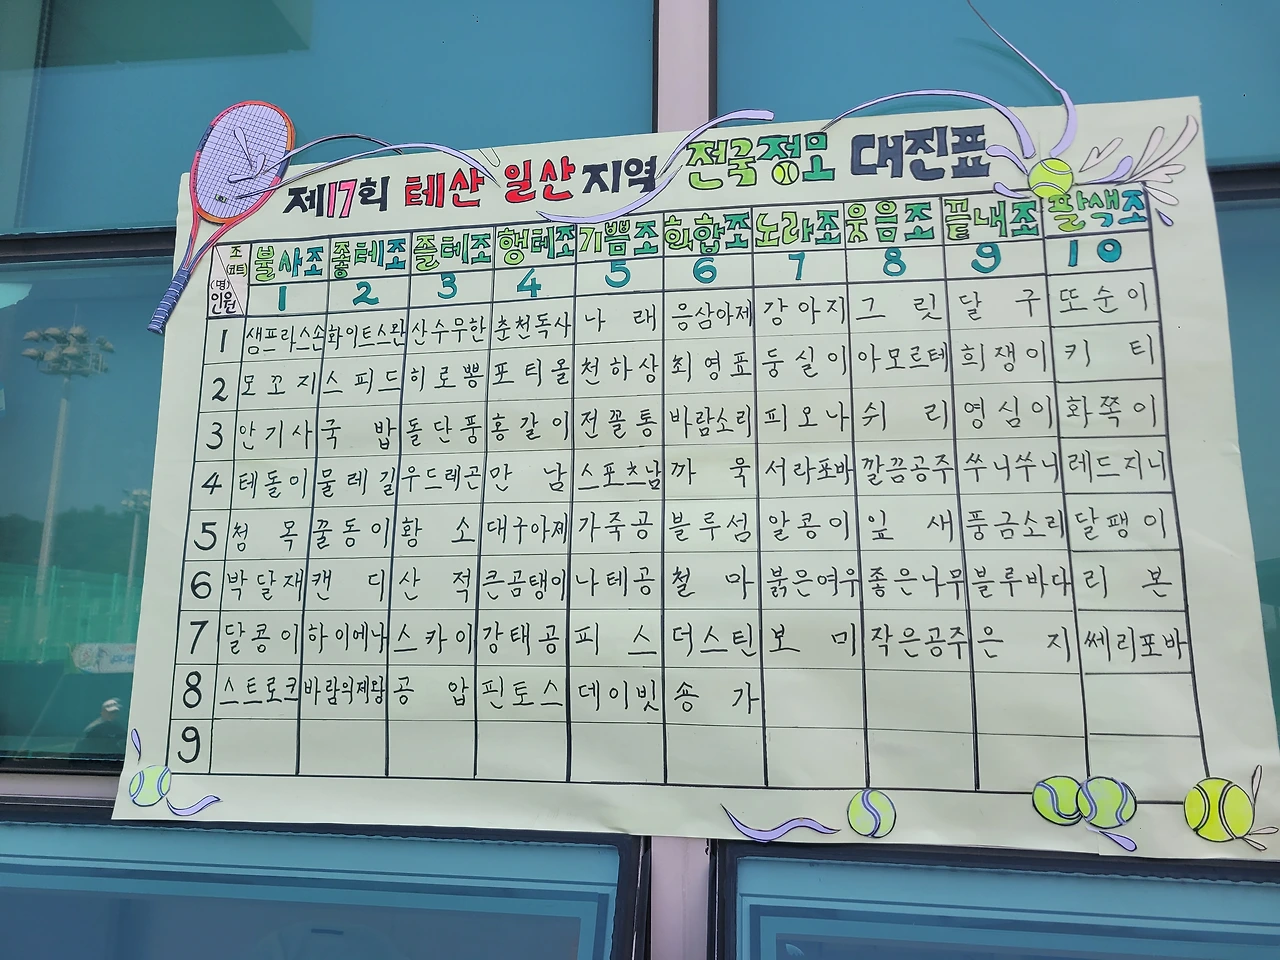 제17회 테산 일산지역 전국정모 대진표
조 (코트) 불사조 좋테조 즐테조 행테조 기쁨조 화합조 노라조 웃음조 끝내조 팔색조
(명) 인원 1 2 3 4 5 6 7 8 9 10
1 샘프라스손 화이트스완 산수무한 춘천독사 나래 응삼아제 강아지 그릿 달구 또순이
2 모꼬지 스피드 히로뽕 포티올 천하상 최영표 둥실이 아모르테 희쟁이 키티
3 안기사 국밥 돌단풍 홍갈이 전꼴통 바람소리 피오나 쉬리 영심이 화쪽이
4 테돌이 물레길 우드레곤 만남 스포츠남 까욱 서라포바 깔끔공주 쑤니쑤니 레드지니
5 청목 꿀동이 황소 대구아제 가죽공 블루섬 알콩이 잎새 풍금소리 달팽이
6 박달재 캔디 산적 큰곰탱이 나테공 철마 붉은여우 좋은나무 블루바다 리본
7 달콩이 하이에나 스카이 강태공 피스 더스틴 보미 작은공주 은지 쎄리포바
8 스트로크 바람의제왕 공압 핀토스 데이빗 송가
9